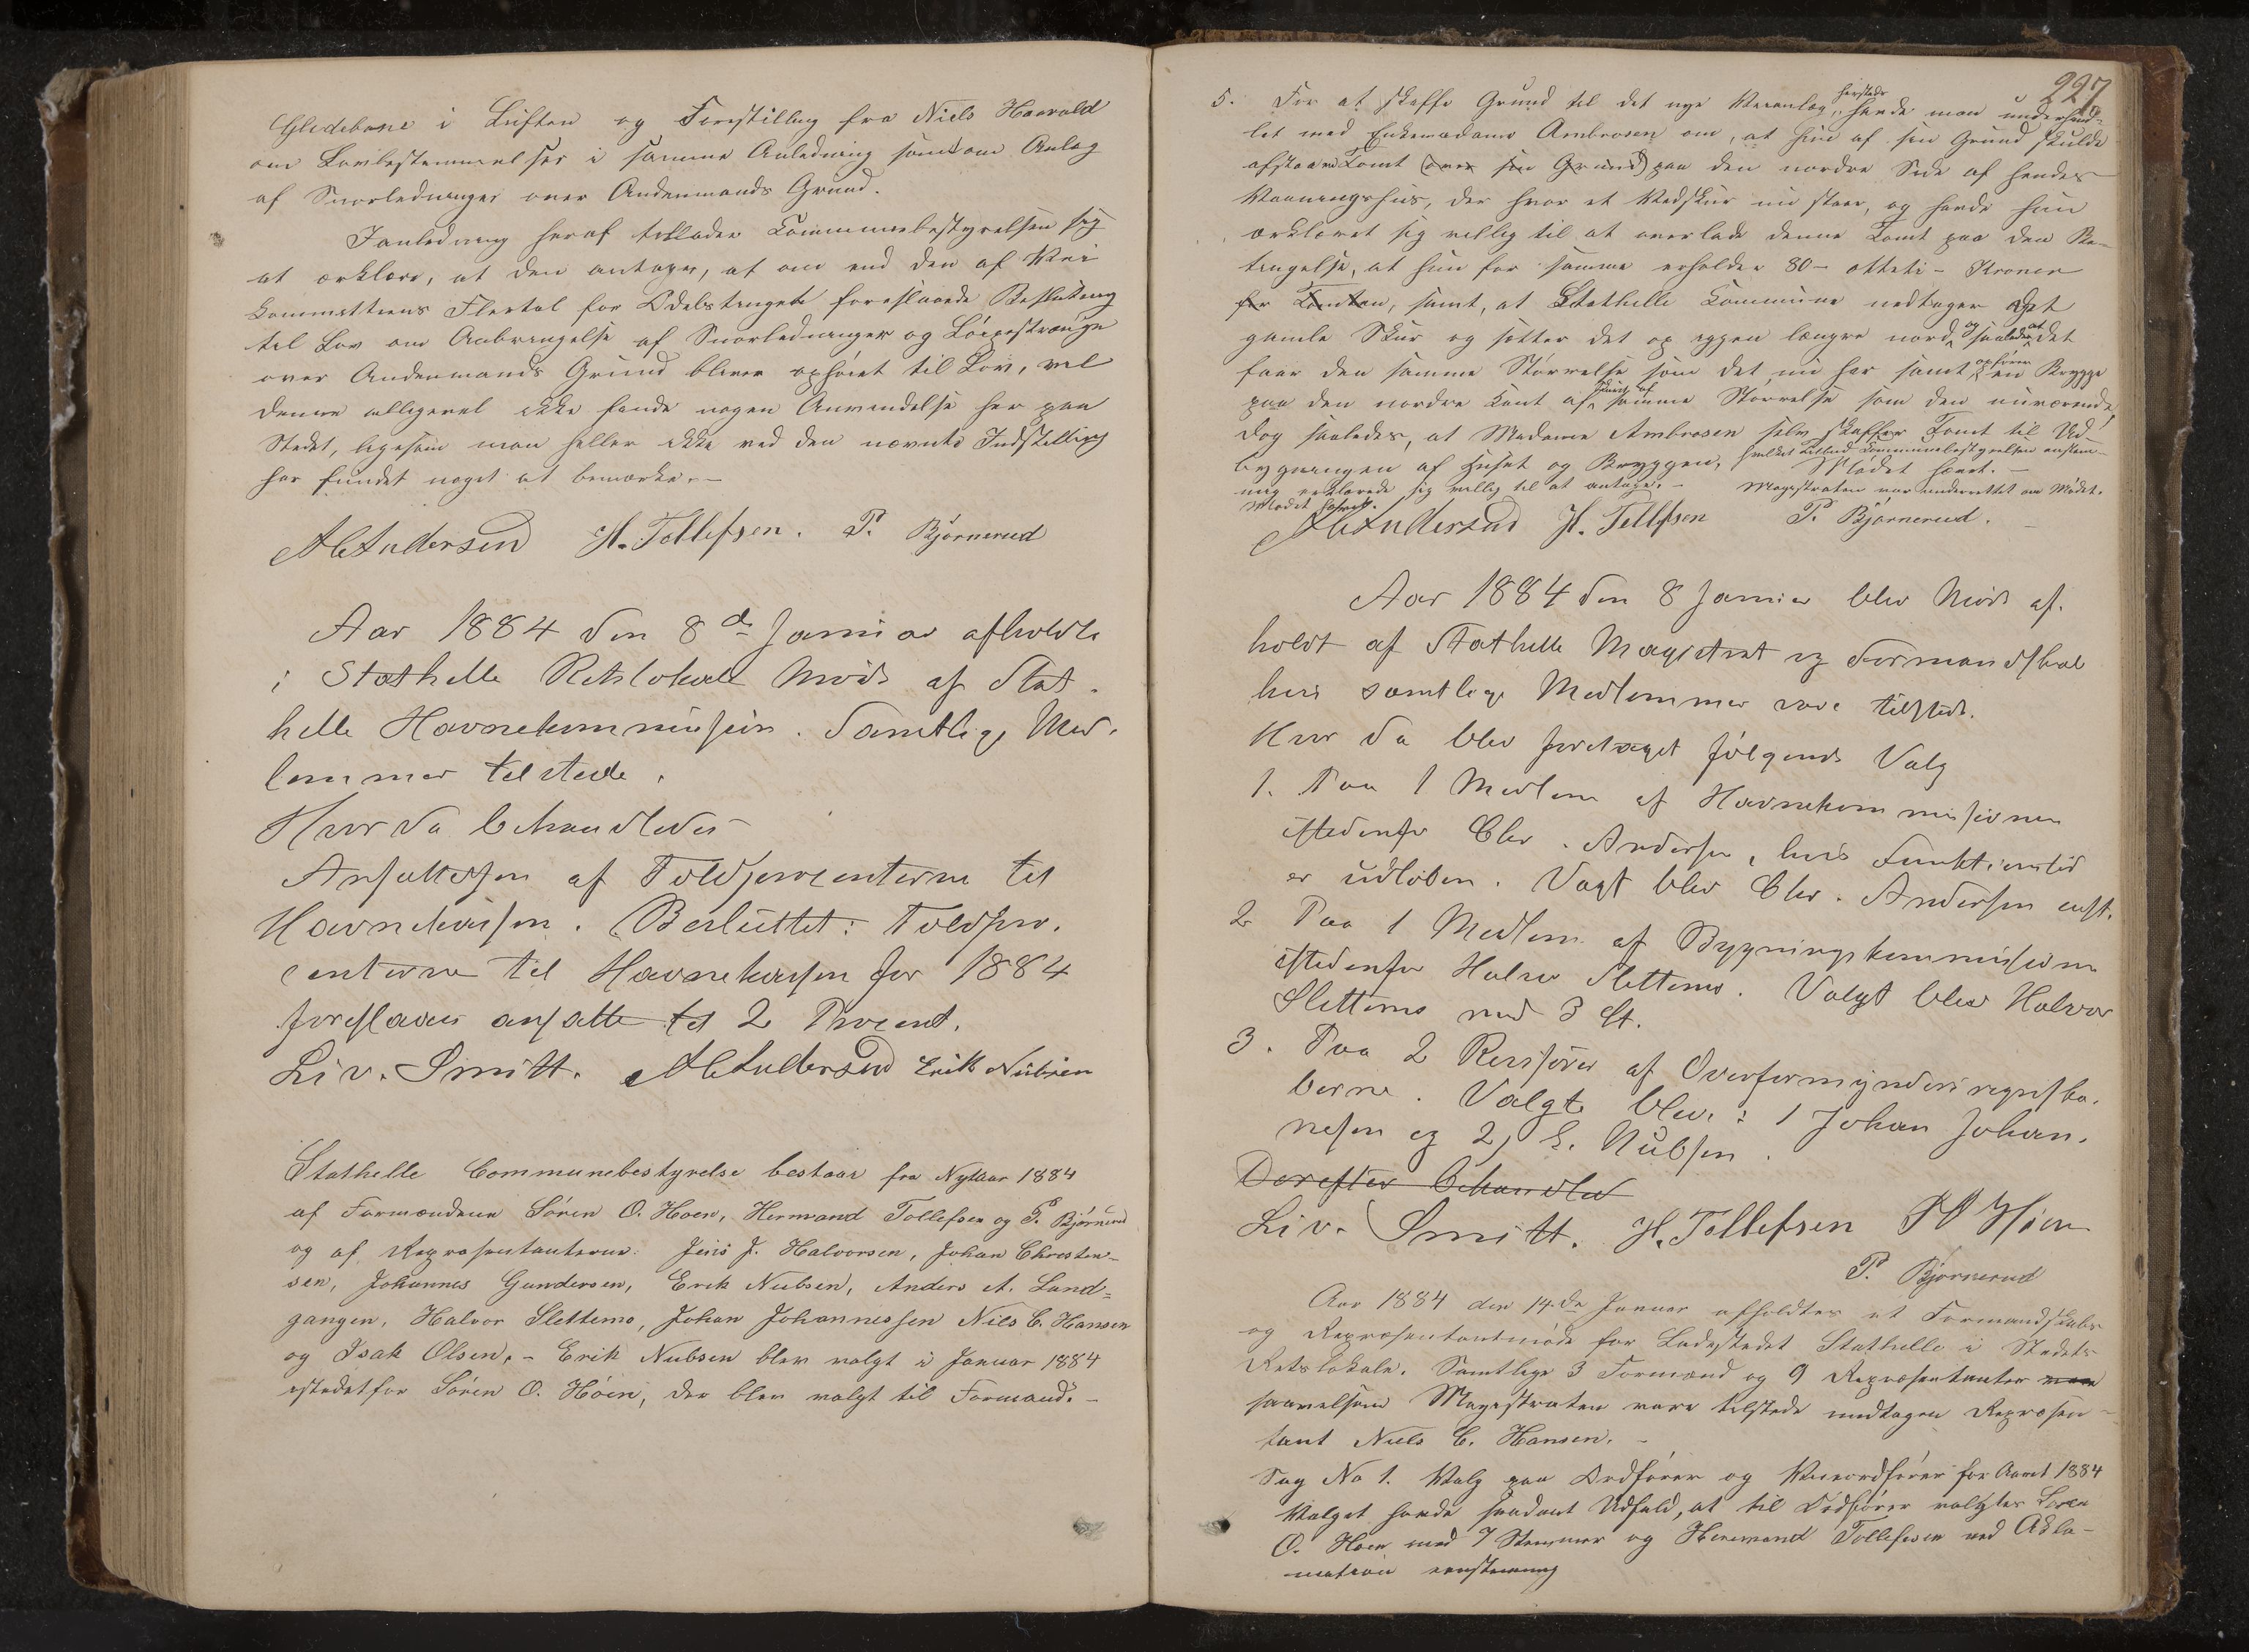 Glidebane i Luften og Forestilling fra Niels Haavold
om Lovbestemmelser i samme Anledning som om Anlæg
af Snorledninger over Andenmands Grund.
Ianledning heraf tillader Communebestyrelsen sig
at erklære, at den antager, at om end den af Vei
Committeens Flertal for Odelstinget foreslaaede Beslutning
til Lov om Anbringelse af Snorledninger og Løipestrænge
over Andenmands Grund bliver ophøiet til Lov, vil
denne alligevel ikke finde nogen Anvendelse her paa
Stedet, ligesom man heller ikke ved den nævnte Indstilling
har fundet noget at bemærke.-
AChAndersen H. Tollefsen. P. Bjørnerud
Aar 1884 den 8de Januar afholdtes
i Stathelle Retslokale Møde af Stat-
helle Havnekommission. Samtlige Med-
lemmer tilstede.
Hvor da behandledes
Ansættelsen af Toldprocenterne til
Havnekassen. Besluttet: Toldpro-
centerne til Havnekassen for 1884
foreslaaes ansatte til 2 Procent.
Liv. Smitt. AChAndersen Erik Nubsen
Stathelle Communebestyrelse bestaar fra Nytaar 1884
af Formændene Sören O. Hoen, Hermand Tollefsen og P. Bjørnerud
og af Repræsentanterne: Jens J. Halvorsen, Johan Christen-
sen, Johannes Gundersen, Erik Nubsen, Anders A. Land=
gangen, Halvor Slettemo, Johan Johannessen Niels C. Hansen
og Isak Olsen.- Erik Nubsen blev valgt i Januar 1884
istedetfor Sören O. Höen, der blev valgt til Formand.-
227
5. For at skaffe Grund til det nye Veianlæg herstæds, havde man underhand-
let med Enkemadame Ambrosen om, at hun af sin Grund skulde
afstaa en Tomt (over sin Grund) paa den nordre Side af hendes
Vaaningshus, der hvor et Vedskur nu staar, og havde hun
erklæret sig villig til at overlade denne Tomt paa den Be-
tingelse, at hun for samme erholder 80 - otteti - Kroner
for Tomten, samt, at Stathelle Commune nedtager det
gamle Skur og sætter det op igjen længre nord og saaledes at det
faar den samme Størrelse som det nu har samt opfører en Brygge
paa den nordre Kant af samme Størrelse som den nuværende,
dog saaledes, at Madame Ambrosen selv skaffer Tomt til Ud-
bygningen af Huset og Bryggen, hvilket Tilbud Communebestyrelsen enstem-
mig erklærede sig villig til at antage.- Mødet hævet.-
Magistraten var underrettet om Mødet.
Mødet hævet.
AChAndersen H. Tollefsen P. Bjørnerud.
Aar 1884 den 8 Januar blev Møde af-
holdt af Stathelle Magistrat og Formandskab
hvis samtlige Medlemmer vare tilstede.
Hvor da blev foretaget følgende Valg
1. Paa 1 Medlem af Havnekommissionen
istedenfor Chr. Andersen, hvis Funktionstid
er udløben. Valgt blev Chr. Andersen enst.
2 Paa 1 Medlem af Bygningskommissionen
istedenfor Halvor Slettemo. Valgt blev Halvor
Slettemo med 3 St.
3. Paa 2 Revisorer af Overformynderiregnska-
berne. Valgte blev: 1 Johan Johan-
nesen og 2) E. Nubsen.
Derefter behandled
Liv. Smitt. H. Tollefsen SO Höen
P. Bjørnerud
Aar 1884 den 14.de Januar afholdtes et Formandskabs
og Repræsentantmøde for Ladestedet Stathelle i Stedets
Retslokale. Samtlige 3 Formænd og 9 Repræsentanter vare
saavelsom Magistraten vare tilstede undtagen Repræsen-
tant Niels C. Hansen.-
Sag No 1. Valg paa Ordfører og Viceordfører for Aaret 1884
Valget havde saadant Udfald, at til Ordfører valgtes Sören
O. Hoen med 7 Stemmer og Hermand Tollefsen ved Akla-
mation eenstemmig